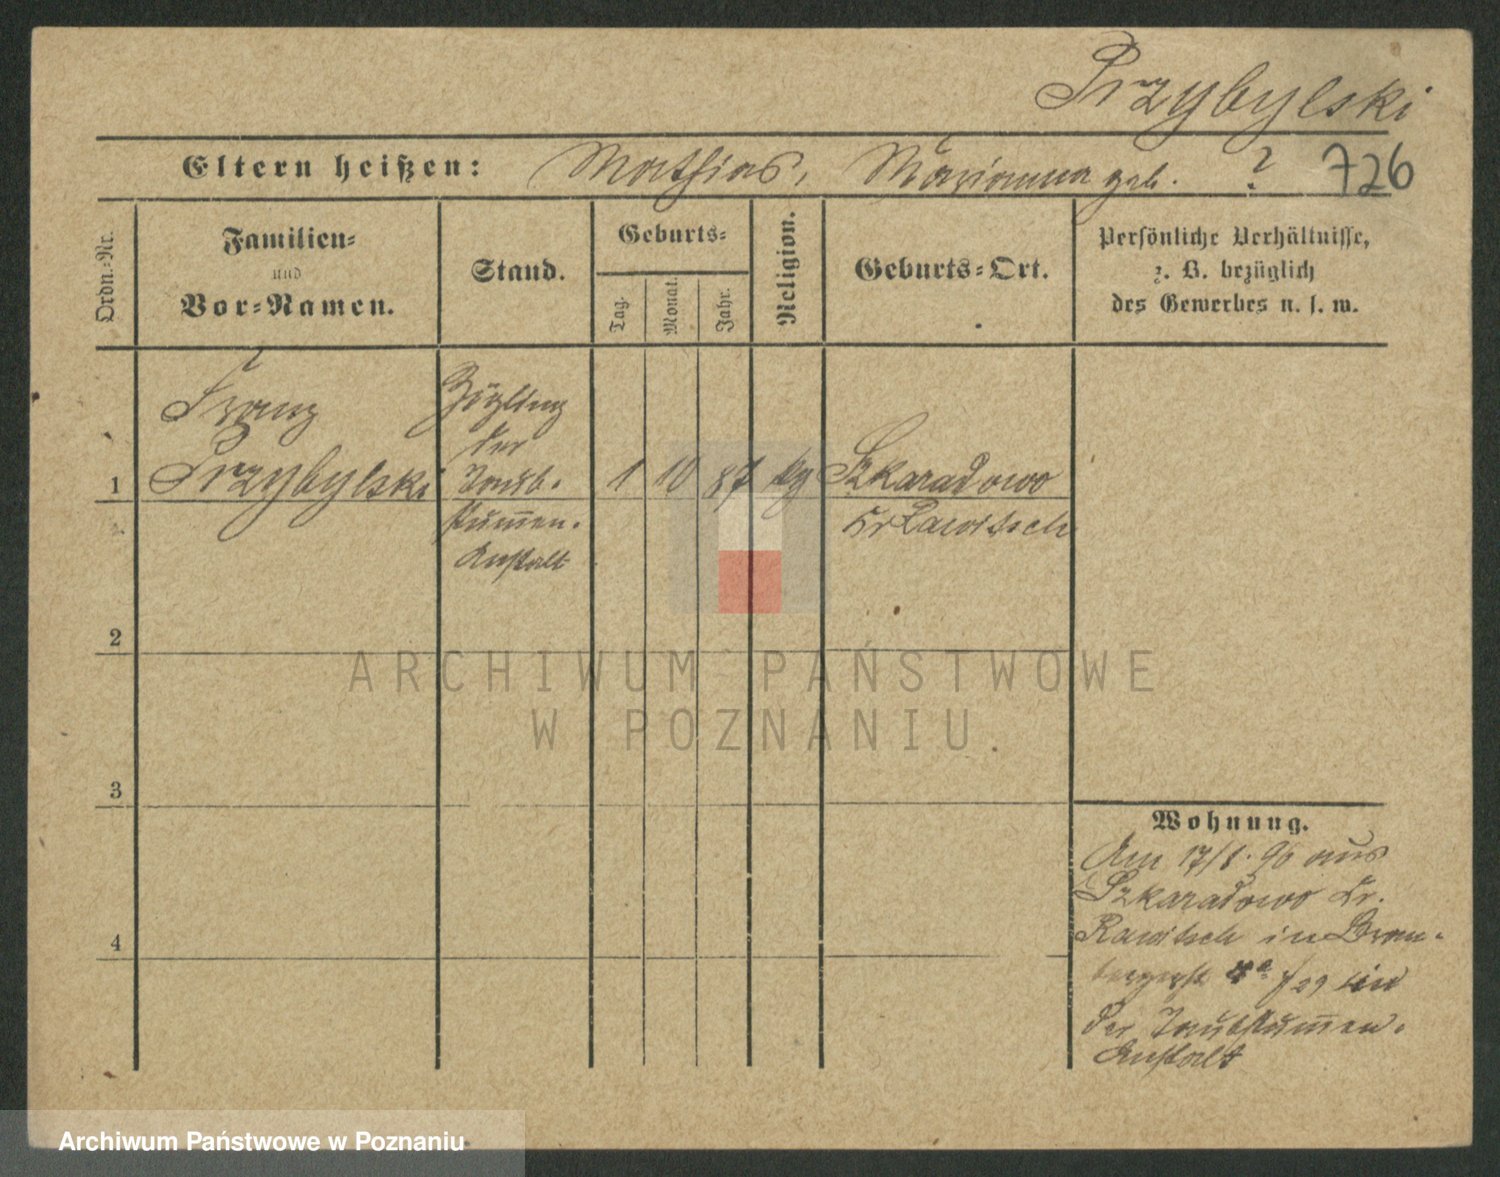 Przybylski
Eltern heißen: Mathias, Marianna geb. ?
726
Ordn.-Nr.
Familien-
und
Vor-Namen.
Stand.
Geburts-
Tag.
Monat.
Jahr.
Religion.
Geburts-Ort.
Persönliche Verhältnisse,
z. B. bezüglich
des Gewerbes u. s. w.
1
Franz
Przybylski
Zögling
der
Taub-
stum̅en-
Anstalt
1 10 87 kg
Szkaradowo
Kr Rawitsch
2
3
4
Wohnung.
Am 17/8. 96 aus
Szkaradowo Kr.
Rawitsch in
in
der Taubstum̅en-
Anstalt
ARCHIWUM PAŃSTWOWE
W POZNANIU
Archiwum Państwowe w Poznaniu